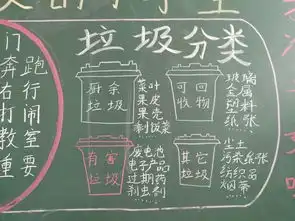 垃圾分类
厨余
垃圾
菜叶
果皮
果壳
剩饭菜
可回
收物
玻璃
金属
塑料
纸张
有害
垃圾
废电池
电子产品
过期药
杀虫剂
其它
垃圾
尘土
污染纸张
纺织品
烟蒂
门
奔跑
右行
打闹
教室
重要